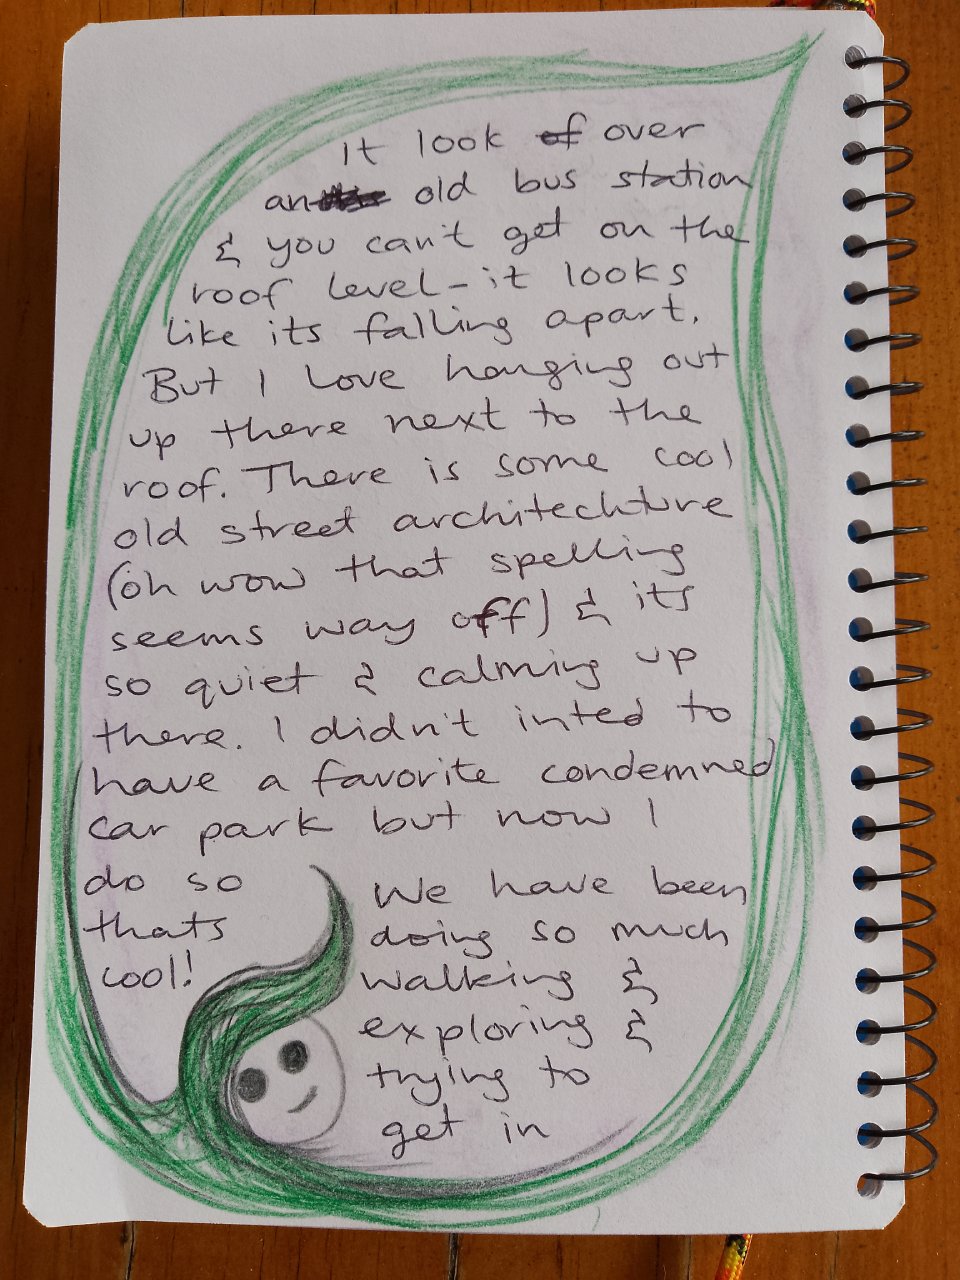 it look of over
an old bus station
& you can't get on the
roof level - it looks
like its falling apart.
But I love hanging out
up there next to the
roof. There is some cool
old street architechture
(oh wow that spelling
seems way off) & its
so quiet & calming up
there. I didn't inted to
have a favorite condemned
car park but now I
do so
thats
cool!
We have been
doing so much
walking &
exploring &
trying to
get in